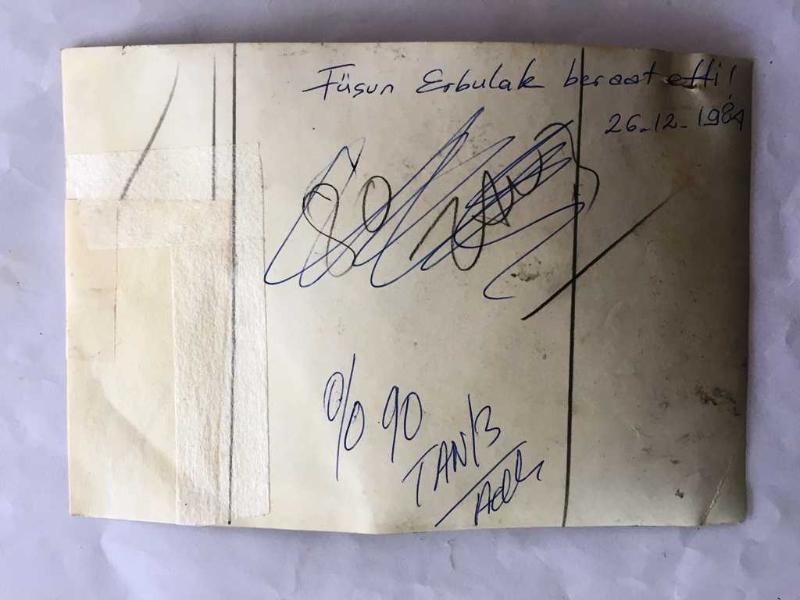 Füsun Erbulak beraat etti!
26-12-1984
80
% 90
TAN/3